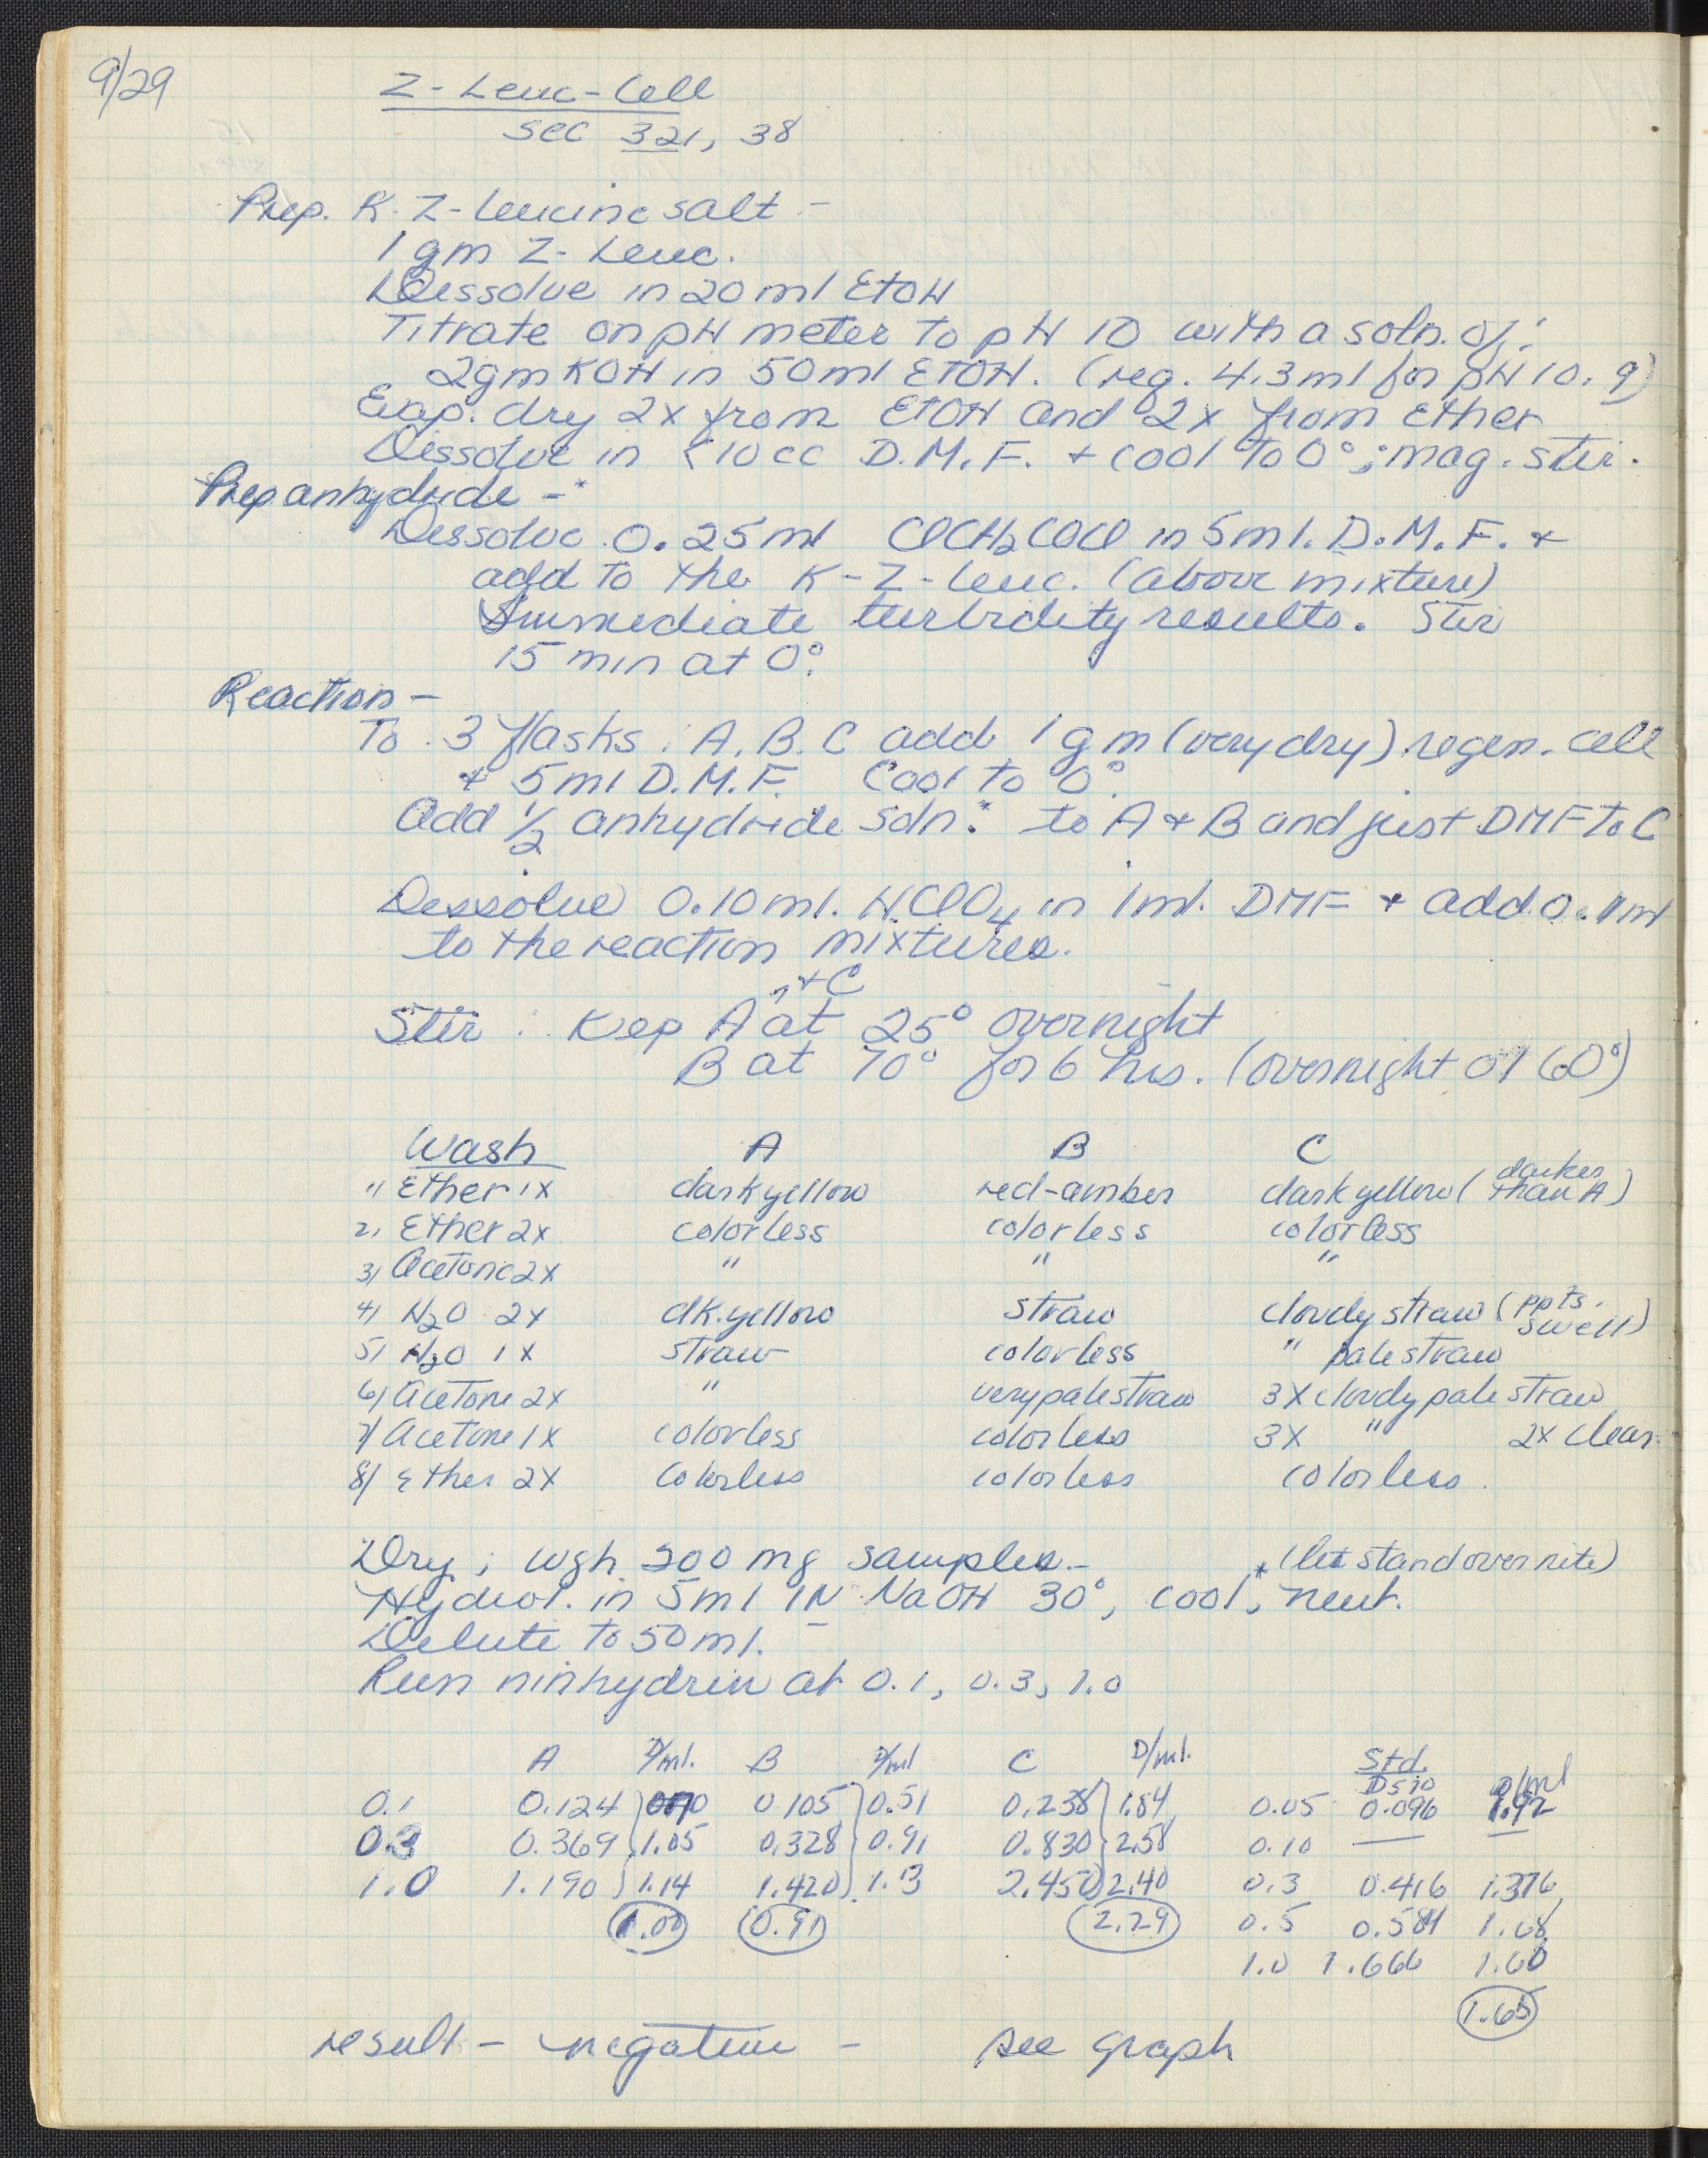 9/29
Z-Leuc-Cell
sec 321, 38
Prep. K-Z-leucine salt -
1 gm Z-Leuc.
Dissolve in 20 ml EtOH
Titrate on pH meter to pH 10 with a soln. of:
2gm KOH in 50 ml EtOH. (req. 4.3 ml for pH 10.9)
Evap. dry 2x from EtOH and 2x from Ether
Dissolve in 10 cc D.M.F. + cool to 0°; mag. stir.
Prep anhydride -*
Dissolve 0.25 ml ClCH2COCl in 5 ml. D.M.F. +
add to the K-Z-leuc. (above mixture)
Immediate turbidity results. Stir
15 min at 0°.
Reaction -
To 3 flasks: A, B, C add 1 gm (very dry) regen. cell
+ 5 ml D.M.F. Cool to 0°.
Add 1/2 anhydride soln.* to A + B and just DMF to C
Dissolve 0.10 ml. HClO4 in 1 ml. DMF + add 0.1 ml
to the reaction mixtures.
+ C
Stir: Keep A at 25° overnight
B at 70° for 6 hrs. (overnight at 60°)
Wash A B C
1) Ether 1x dark yellow red-amber dark yellow (darker than A)
2) Ether 2x colorless colorless colorless
3) Acetone 2x " " "
4) H2O 2x dk. yellow straw cloudy straw (ppts. swell)
5) H2O 1x straw colorless " pale straw
6) Acetone 2x " very pale straw 3X cloudy pale straw
7) Acetone 1x colorless colorless 3X " 2x clear
8) Ether 2x colorless colorless colorless
Dry; wgh 200 mg samples - * (let stand over nite)
Hydrol. in 5 ml 1N NaOH 30°, cool,* neut.
Dilute to 50 ml.
Run ninhydrin at 0.1, 0.3, 1.0
A D/ml. B D/ml C D/ml. Std.
D570 D/ml
0.1 0.124 0.105 0.51 0.238 1.84 0.05 0.096 1.92
0.3 0.369 1.05 0.328 0.91 0.830 2.58 0.10 —
1.0 1.190 1.14 1.420 1.3 2.450 2.40 0.3 0.416 1.376
1.00 0.91 2.29 0.5 0.584 1.68
1.0 1.666 1.60
1.65
result - negative - see graph